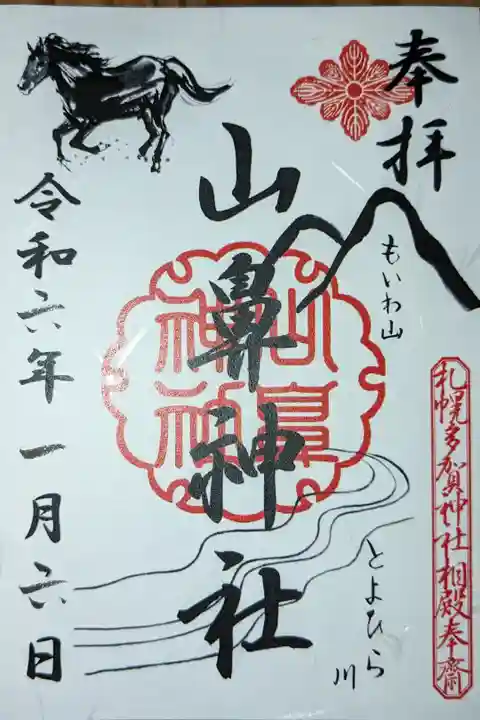 奉拝
もいわ山
札幌多賀神社相殿奉齋
とよひら川
山鼻神社
山鼻神社
令和六年一月六日